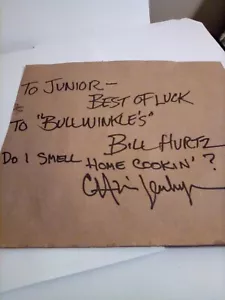 TO JUNIOR -
& BEST OF LUCK
TO "BULLWINKLE'S"
BILL HURTZ
DO I SMELL HOME COOKIN'?
Chris